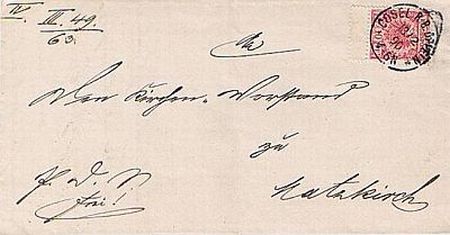 IV. III. 49.
63.
COSEL
An
Den Kirchen-Vorstand
zu
Matzkirch
frei!